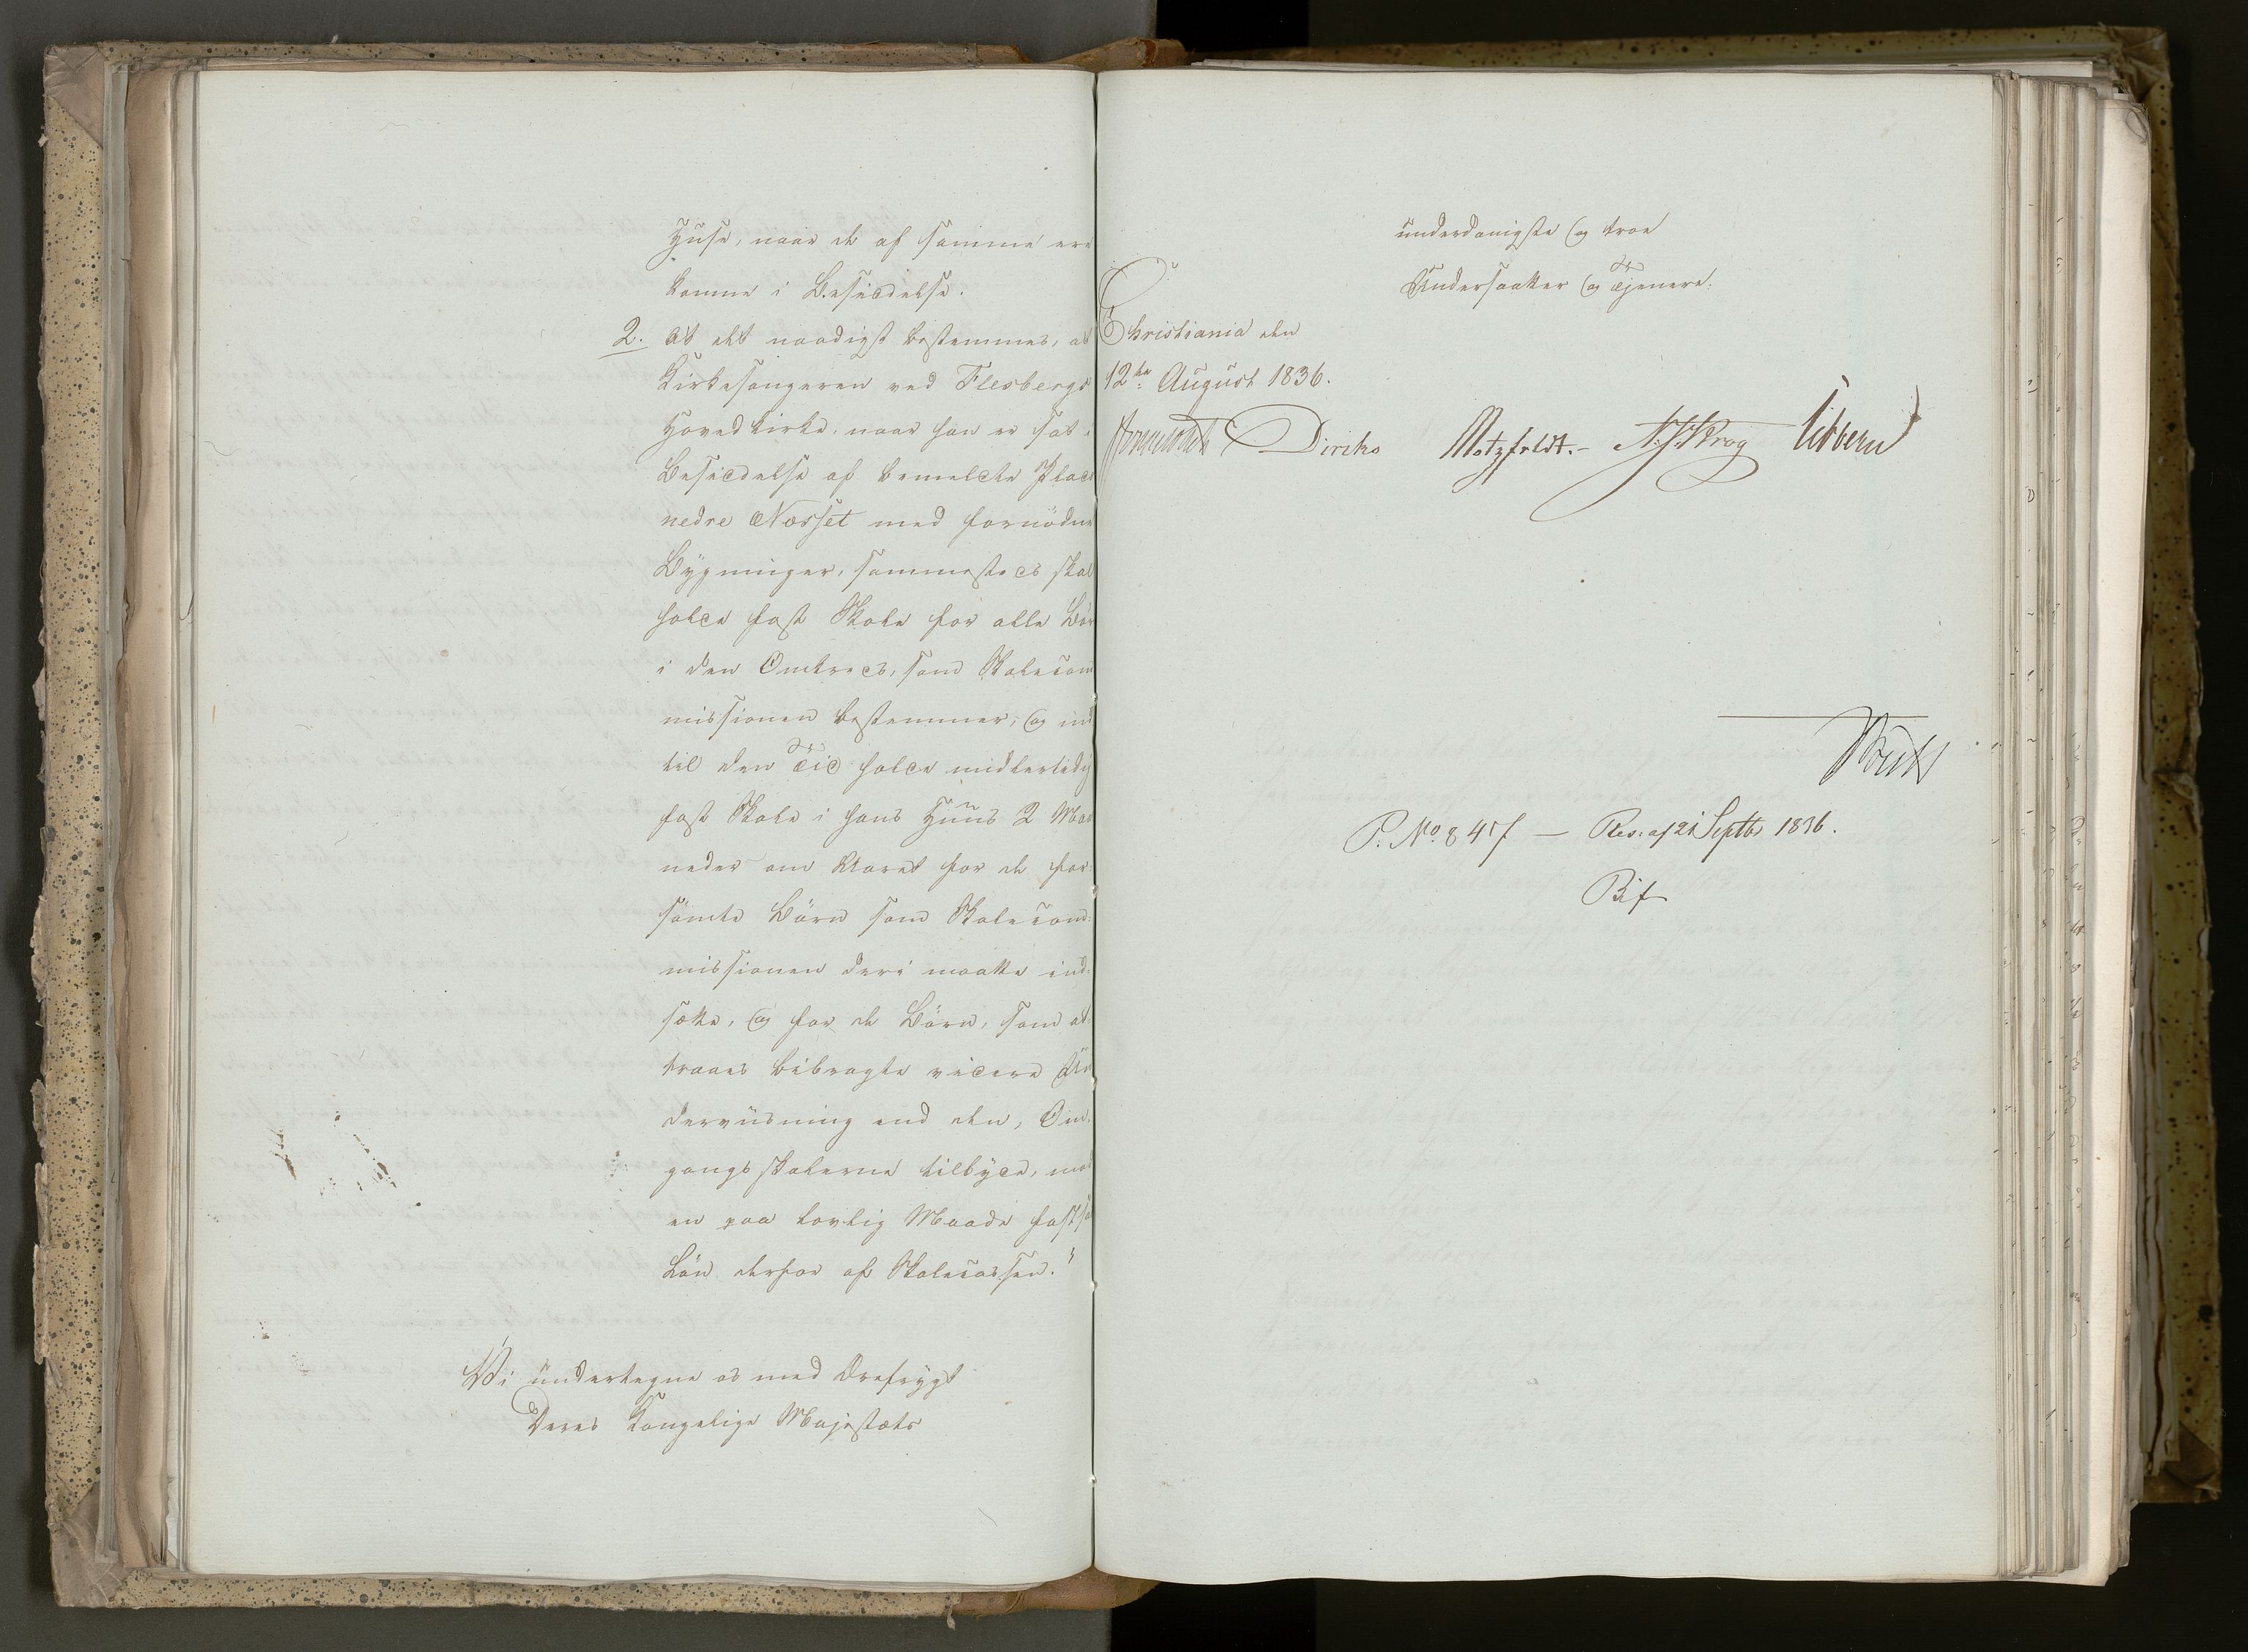 Huse, naar de af samme ere
komne i Besiddelse.
2. at det naadigst bestemmes, at
Kirkesangeren ved Flesbergs
Hovedkirke, naar han er sat i
Besiddelse af bemeldte Plads
nedre Næsset med fornödne
Bygninger, sammesteds skal
holde fast Skole for alle Bör
i den Omkreds, som Skolecom
missionen bestemmer, og ind
til den Tid holde midlertidig
fast Skole i hans Huus 2 Maa
neder om Aaret for de for-
sömte Börn som Skolecom-
missionen deri maatte ind-
sætte, og for de Börn, som at-
traaes bibragte videre Un
derviisning end den, Om-
gangsskolerne tilbyde, mod
en paa lovlig Maade fastsa
Lön derfor af Skolecassen."
Vi undertegne os med Ærefrygt
Deres Kongelige Majestæts
underdanigste og troe
Undersaatter og Tjenere.
Christiania den
12te August 1836.
Diriks Motzfeldt.- Krog Vibbern
P. No. 847 — Res. af 21 Septbr 1836.
Bif